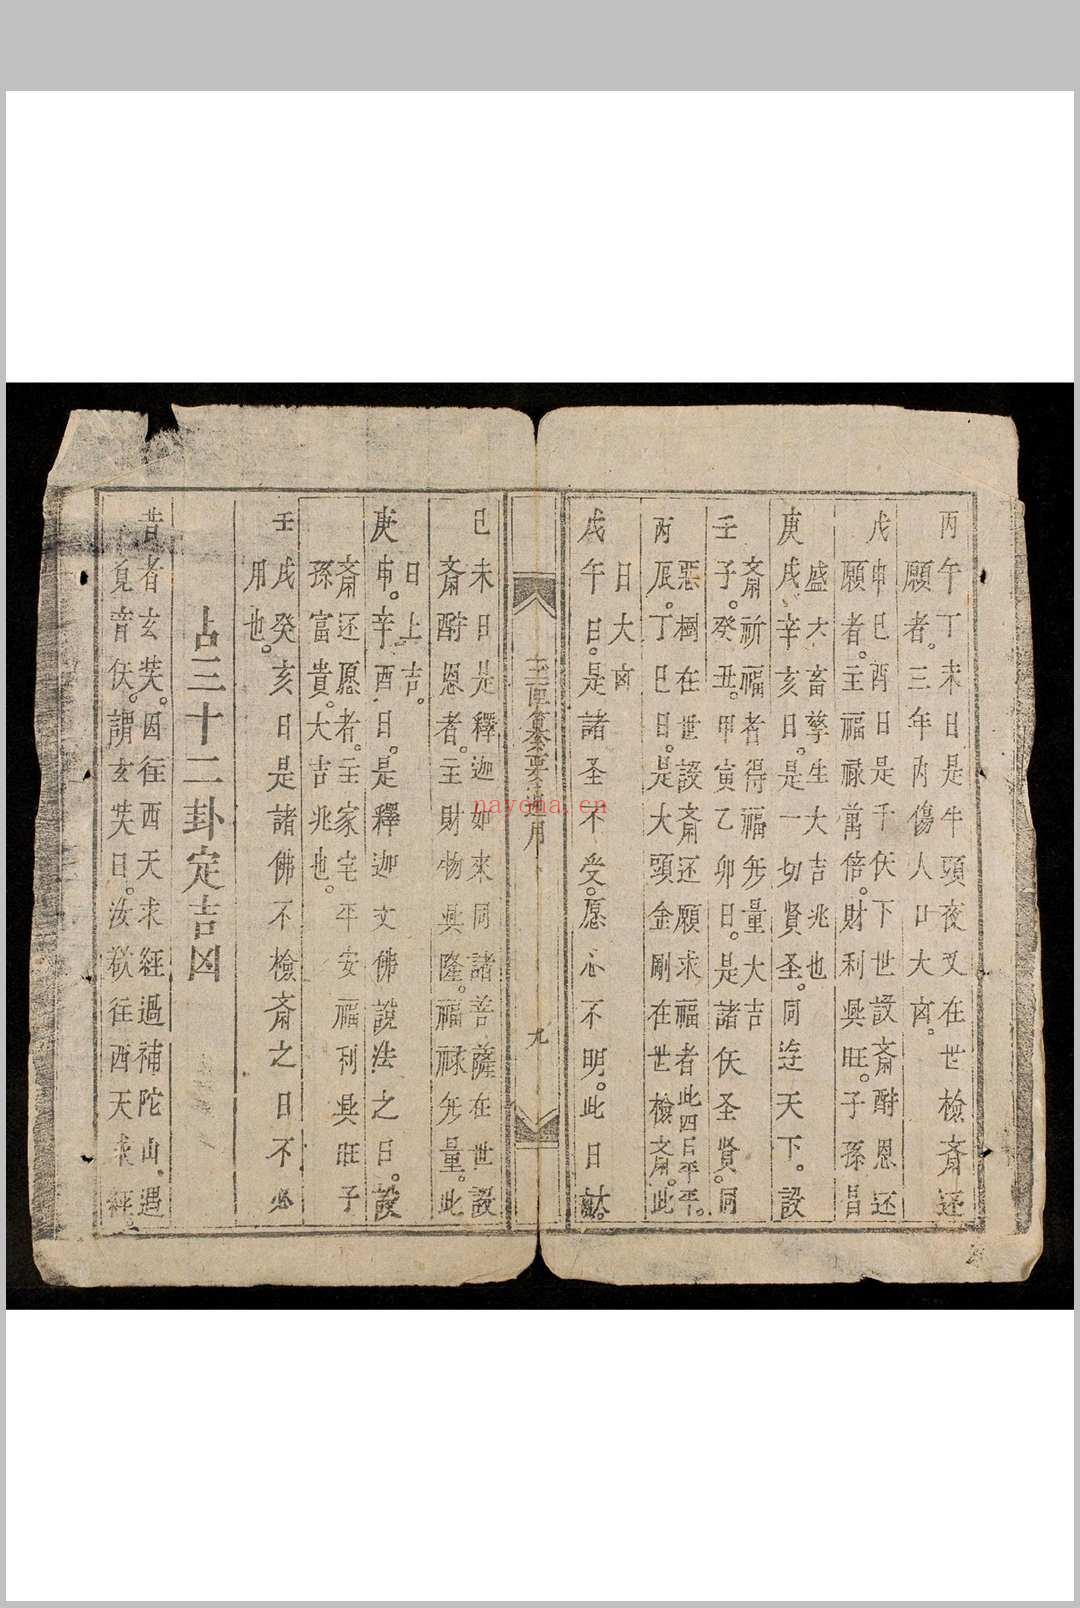 丙午丁未日是牛頭夜叉在世檢斎还
願者。三年內傷人口大㐫。
戊申己酉日是千仸下世設斎酧恩还
願者。主福禄萬倍。財利興旺。子孫昌
盛大畜孳生大吉兆也
庚戌辛亥日。是一切賢圣。同遊天下。設
斎祈福者得福旡量大吉
壬子。癸丑。甲寅乙卯日。是諸仸圣賢。同
惡樹在世設斎还願求福者此四日平平。
丙辰。丁巳日。是大頭金剛在世檢斎。此
日大㐫
戊午日。是諸圣不受。愿心不明。此日
己未日是釋迦如來同諸菩薩在世設
斎酧恩者。主財物興隆。福禄旡量。此
日上吉。
庚申。辛酉日。是釋迦文佛說法之日。設
斎还愿者。主家宅平安福利興旺子
孫富貴。大吉兆也。
壬戌癸亥日是諸佛不檢斎之日不必
用也。
占三十二卦定吉凶
昔者玄奘。因往西天求經過補陀山。遇
覓音仸。謂玄奘曰。汝欲往西天求經
九
nayona.cn